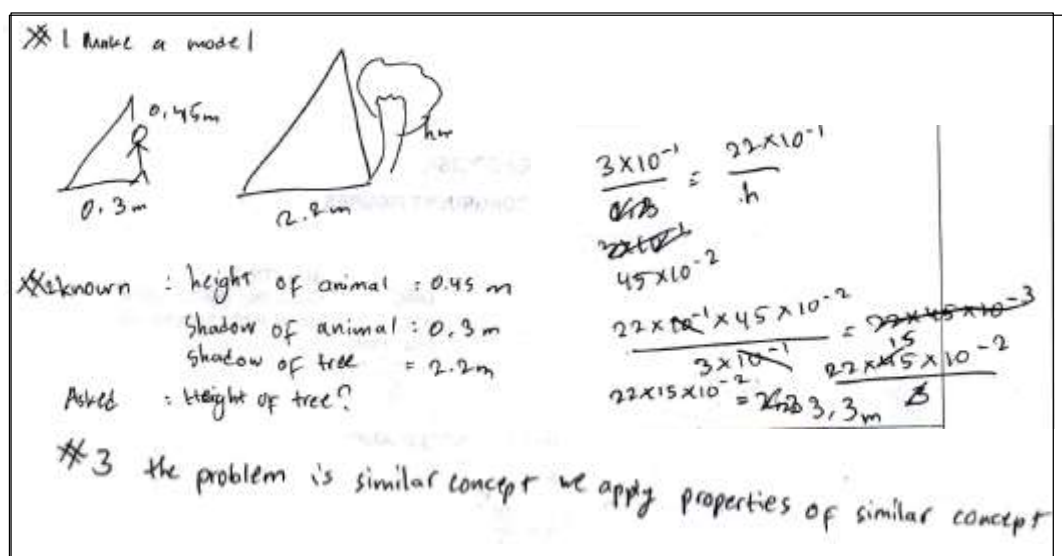 # 1 Make a model
0,45m
0.3m
hm
2.2m
#2 known : height of animal : 0.45 m
Shadow of animal : 0.3 m
Shadow of tree = 2.2m
Asked : Height of tree?
3×10⁻¹ / = 22×10⁻¹ / h
3×10⁻¹
45×10⁻²
22×10⁻¹×45×10⁻² / 3×10⁻¹ = 22×45×10⁻³
22×45×10⁻² / 3
15
22×15×10⁻² = 3,3m
#3 the problem is similar concept we apply properties of similar concept